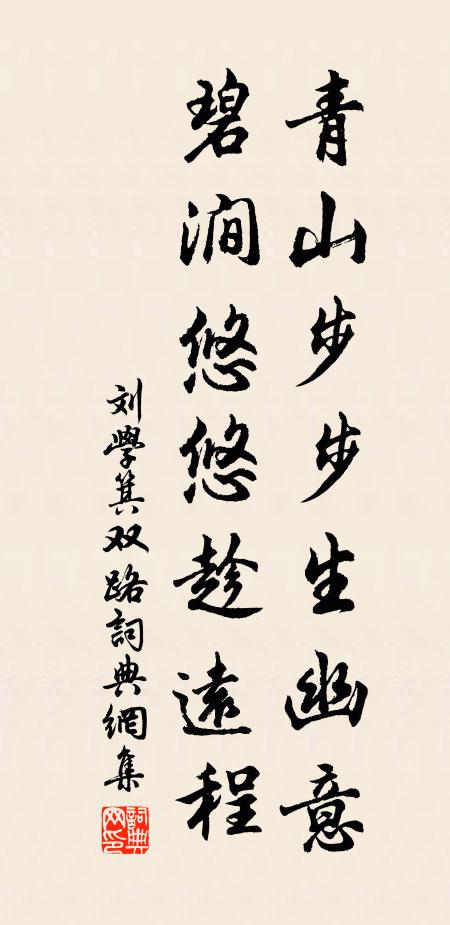 青山步步生幽意
碧涧悠悠趁遠程
刘學箕双路詞典網集
詞典网印